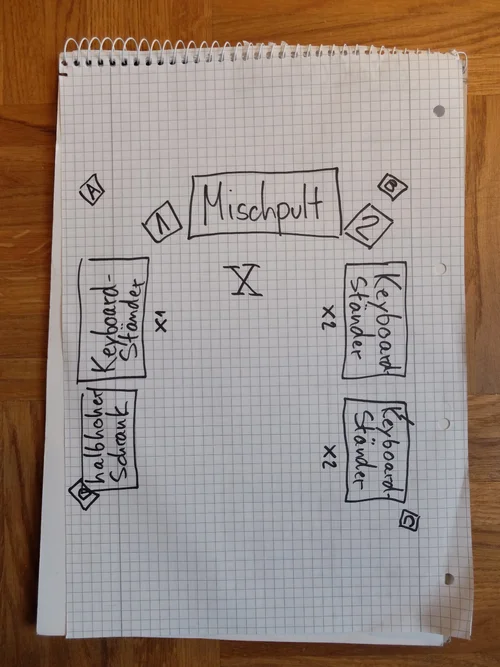 A
B
1
Mischpult
2
X
Keyboard-
Ständer
x1
Keyboard-
Ständer
x2
halbhoher
Schrank
Keyboard-
Ständer
x2
D